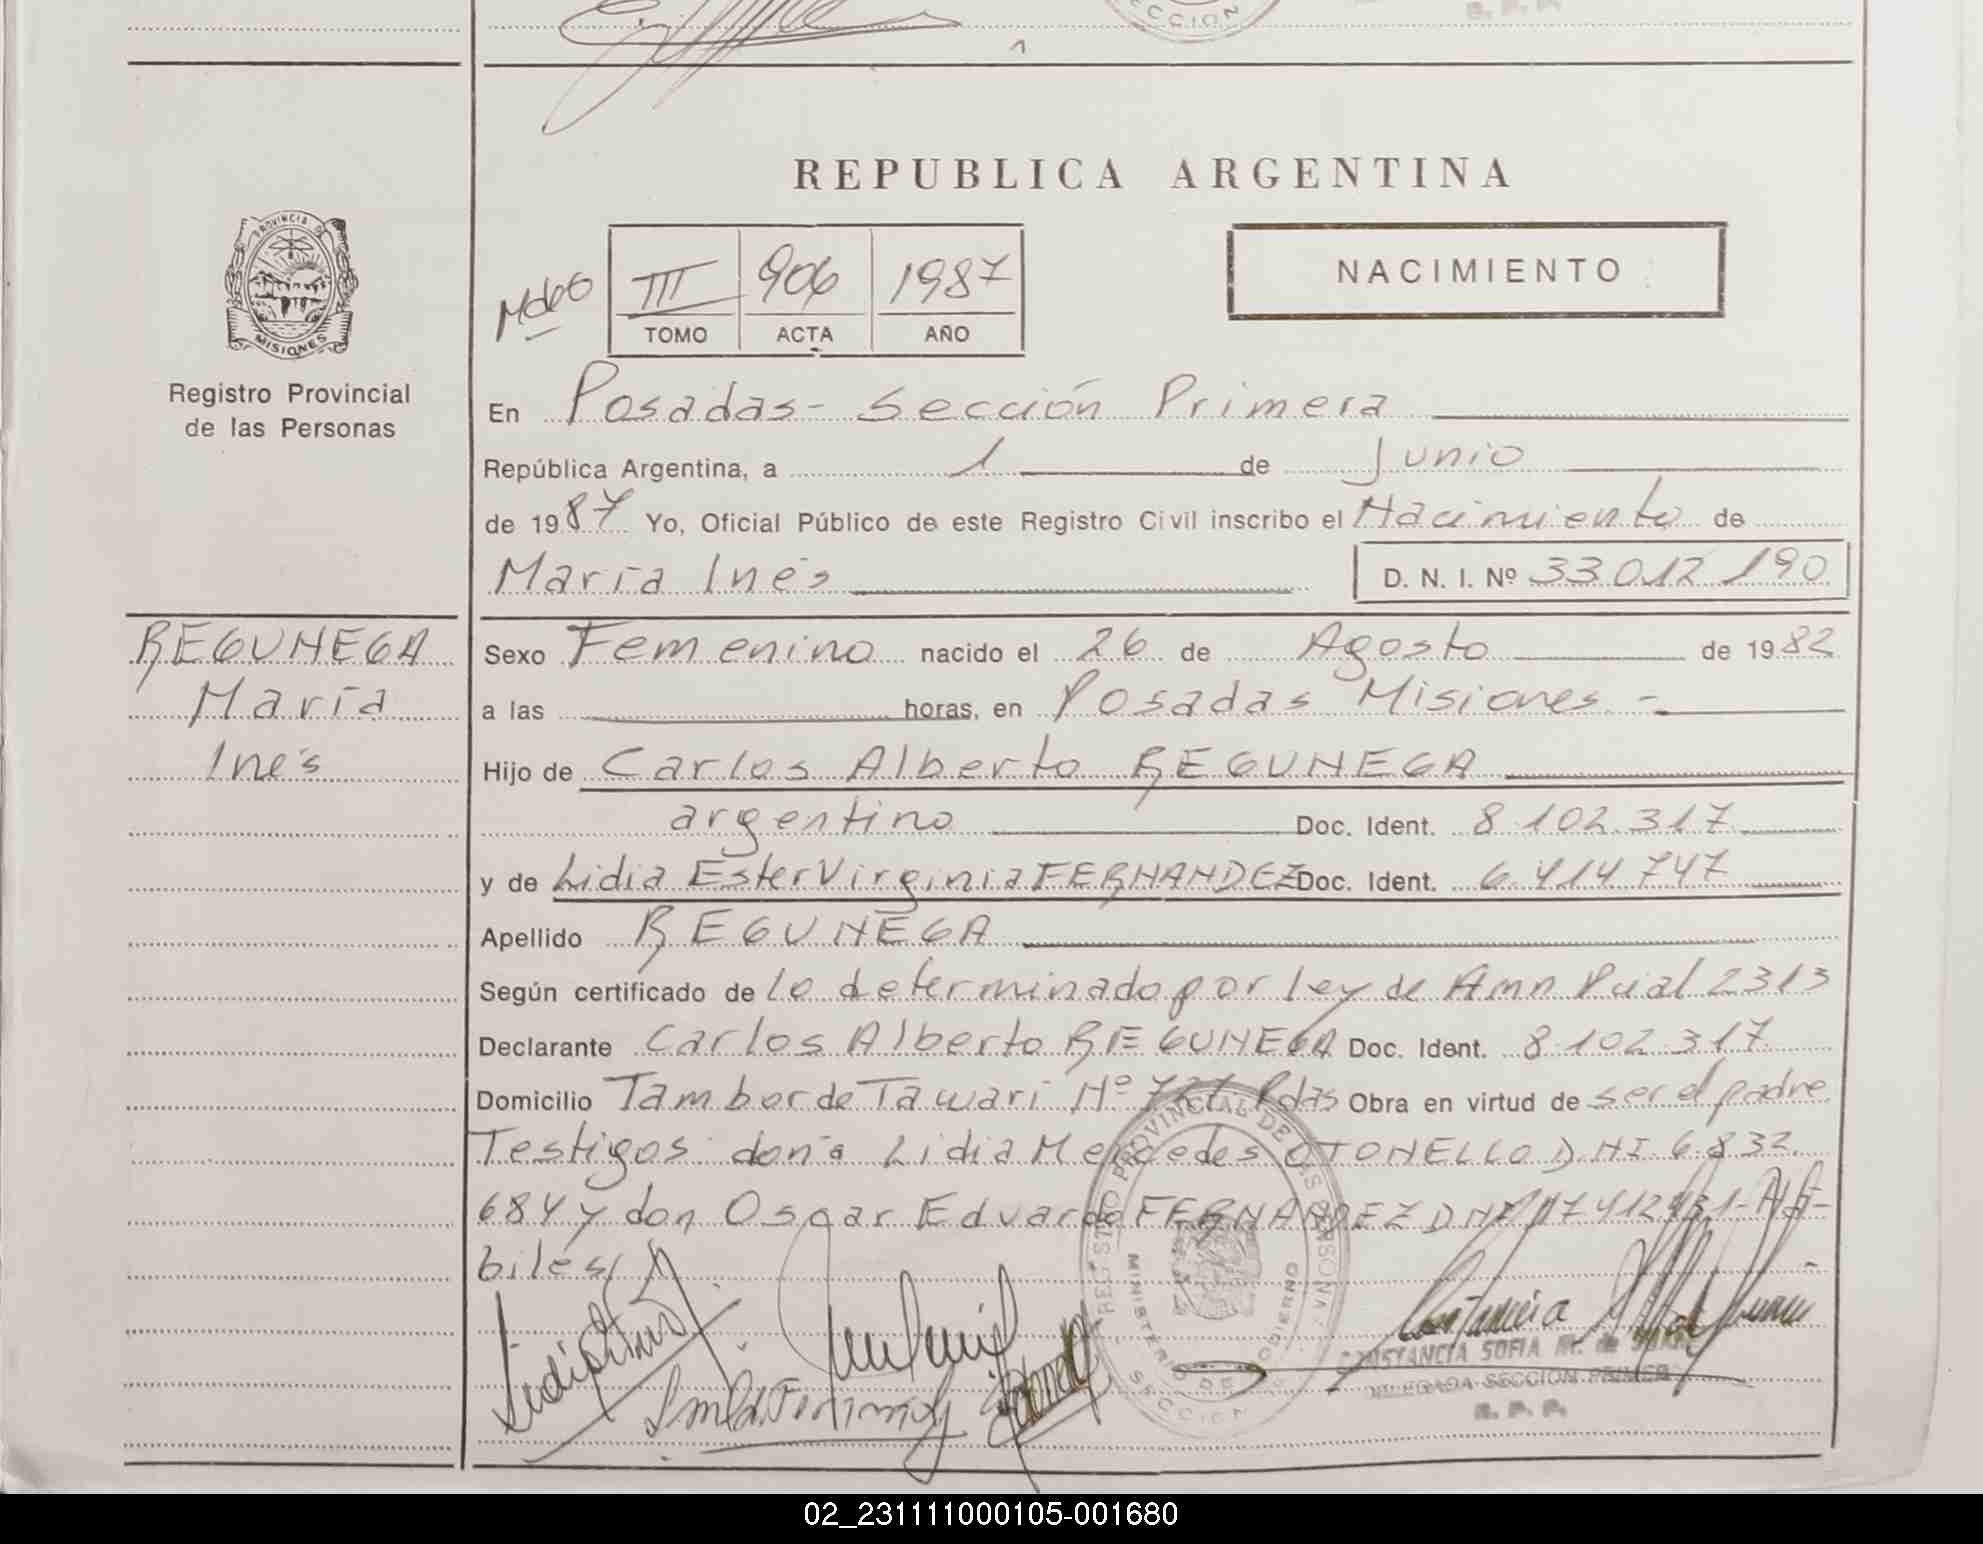 REPUBLICA ARGENTINA
PROVINCIA DE
MISIONES
Registro Provincial
de las Personas
III 906 1987
TOMO ACTA AÑO
NACIMIENTO
En Posadas - Sección Primera
República Argentina, a 1 de Junio
de 1987 Yo, Oficial Público de este Registro Civil inscribo el Nacimiento de
María Inés D. N. I. Nº 33.012.190
REGUNEGA
María
Inés
Sexo Femenino nacido el 26 de Agosto de 1982
a las horas, en Posadas Misiones -
Hijo de Carlos Alberto REGUNEGA
argentino Doc. Ident. 8.102.317
y de Lidia Ester Virginia FERNANDEZ Doc. Ident. 6.414.747
Apellido REGUNEGA
Según certificado de lo determinado por ley de Amn Pcial 2313
Declarante Carlos Alberto REGUNEGA Doc. Ident. 8.102.317
Domicilio Tambor de Tawari Nº Pdas Obra en virtud de ser el padre
Testigos doña Lidia Mercedes OTONELLO DNI 6.832.
684 y don Oscar Eduardo FERNANDEZ DNI Há-
biles
REGISTRO PROVINCIAL DE LAS PERSONAS
MINISTERIO DE GOBIERNO
SECCION
CONSTANCIA SOFIA M. de
DELEGADA SECCION PRIMERA
R. P. P.
02_231111000105-001680